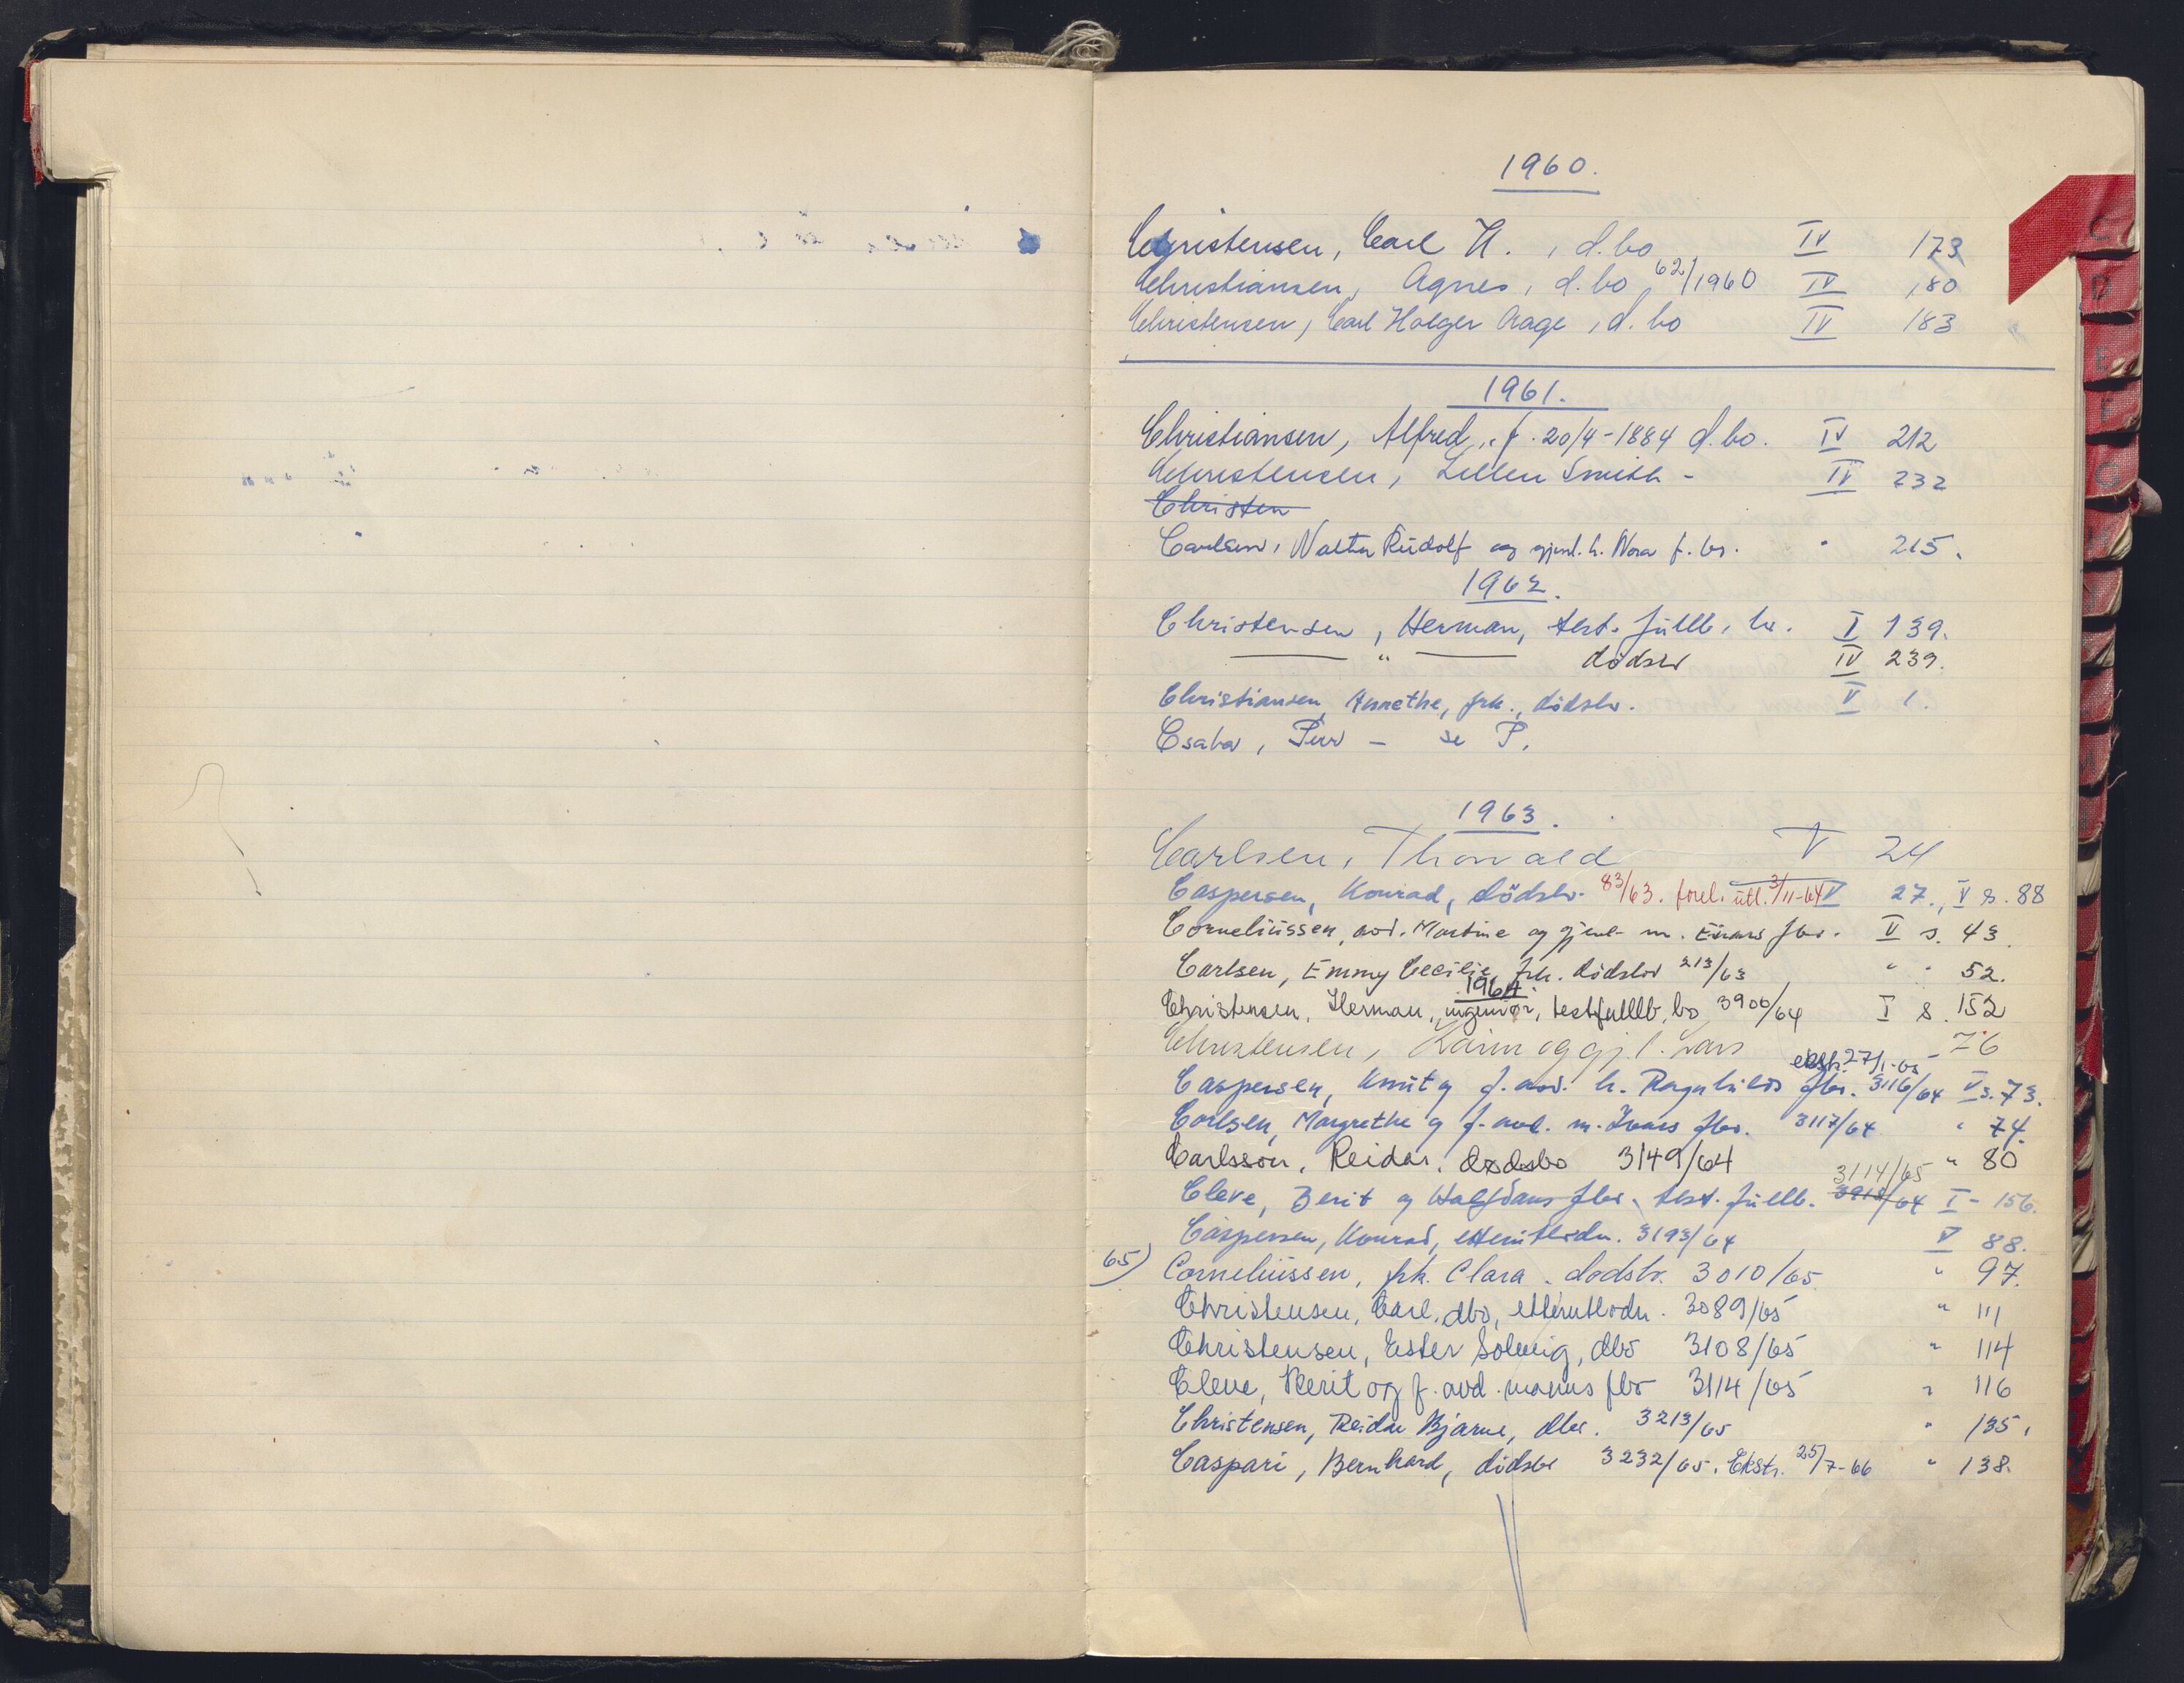 1960.
Christensen, Carl H., d.bo IV 173
Christiansen, Agnes, d.bo 62/1960 IV 180
Christensen, Carl Holger Aage, d.bo IV 183
1961.
Christiansen, Alfred, f. 20/4-1884 d.bo. IV 212
Christensen, Lillen Smith - IV 232
Christen
Carlsen, Walter Rudolf og gjenl. h. Nora f.bo. " 215.
1962.
Christensen, Herman, test. fullb. bo. I 139.
— " — dödsbo IV 239.
Christiansen, Annethe, frk., dödsbo. V 1.
Csaba, Puw - se P.
1963.
Carlsen, Thorvald V 24
Caspersen, Konrad, dödsbo. 83/63. forel. utl. 3/11-64 V 27., V s. 88
Corneliussen, avd. Martine og gjenl. m. Einars fbo. V s. 43.
Carlsen, Emmy Cecilie, frk. dödsbo 213/63 " " 52.
1964.
Christensen, Herman, ingeniør, testfulllb. bo 3900/64 I s. 152
Christensen, Karin og gj.l. Lars - 76
ekstr. 27/1-65
Caspersen, Knut og f. avd. h. Ragnhilds fbo. 3116/64 V s. 73.
Carlsen, Margrethe og f. avd. m. Ivars fbo. 3117/64 " 74.
Carlsson, Reidar. dødsbo 3149/64 " 80
3114/65
Cleve, Berit og Halfdans fbo. test. fullb. 3918/64 I - 156.
Caspersen, Konrad, etterutlodn. 3193/64 V 88.
65) Corneliussen, frk. Clara. dødsbo. 3010/65 " 97.
Christensen, Carl, dbo, etterutlodn. 3089/65 " 111
Christensen, Ester Solveig, dbo 3108/65 " 114
Cleve, Berit og f. avd. manns fbo 3114/65 " 116
Christensen, Reidar Bjarne, dbo. 3213/65 " 135.
Caspari, Bernhard, dödsbo 3232/65. Ekstr. 25/7-66 " 138.
C
D
E
F
G